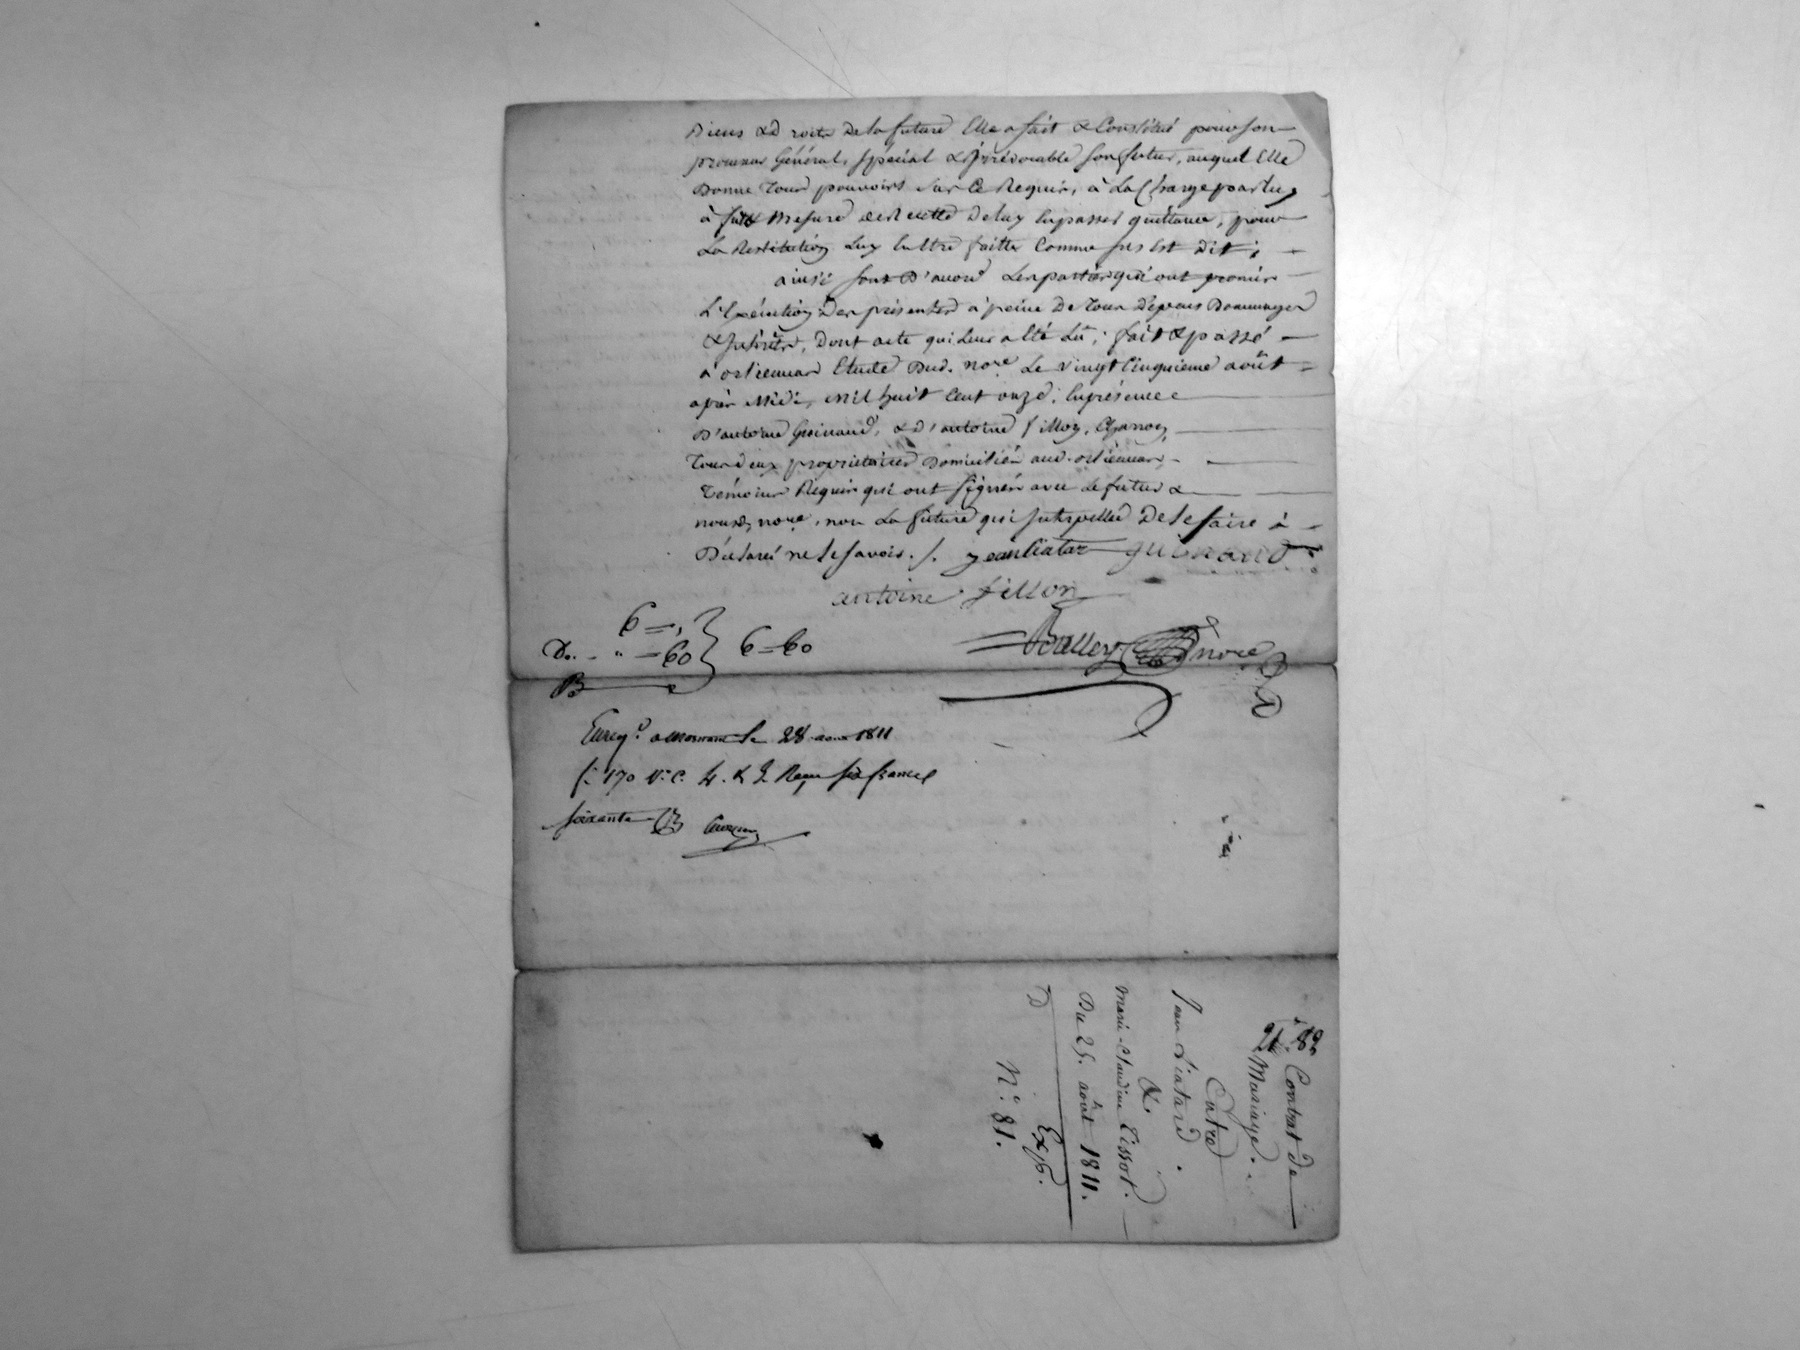 Biens & Droits de la future Elle a fait & Constitué pour son
procureur Général, spécial & irrévocable son futur, auquel Elle
Donne Tous pouvoirs sur Ce Requis, à La Charge par luy
à fur & Mesure de recette de luy en passer quittance, pour
La Restitution Luy En être faitte Comme sus Est Dit;
ainsi sont D'accord Les parties qui ont promis
L'Exécution Des présentes à peine De Tous Dépens Dommages
& Intérêts, Dont acte qui Leur a Été Lû; fait & passé
a orliennas Etude Dud. nore Le vingt Cinquieme août
après Midi, mil huit Cent onze; En présence
D'antoine Guinand, & D'antoine fillon,
Tous deux proprietaires Domiciliés aud. orliennas
Témoins Requis qui ont signés avec Le futur &
nousd. nore, non La future qui Interpellée De Le faire à
Déclaré ne Le savoir ./. jean liatar guinand
antoine fillon
6 = ,
Do.. - " = 60 6 = 60
Balley nore
Enregé. a mornant le 28 aout 1811
fo. 170 vo. c. 4. & 5. Reçu six francs
soixante
82
Contrat de
Mariage.
Entre
Jean Liatard.
&
Marie Claudine Tissot.
Du 25. août 1811.
Exp.
No. 81.